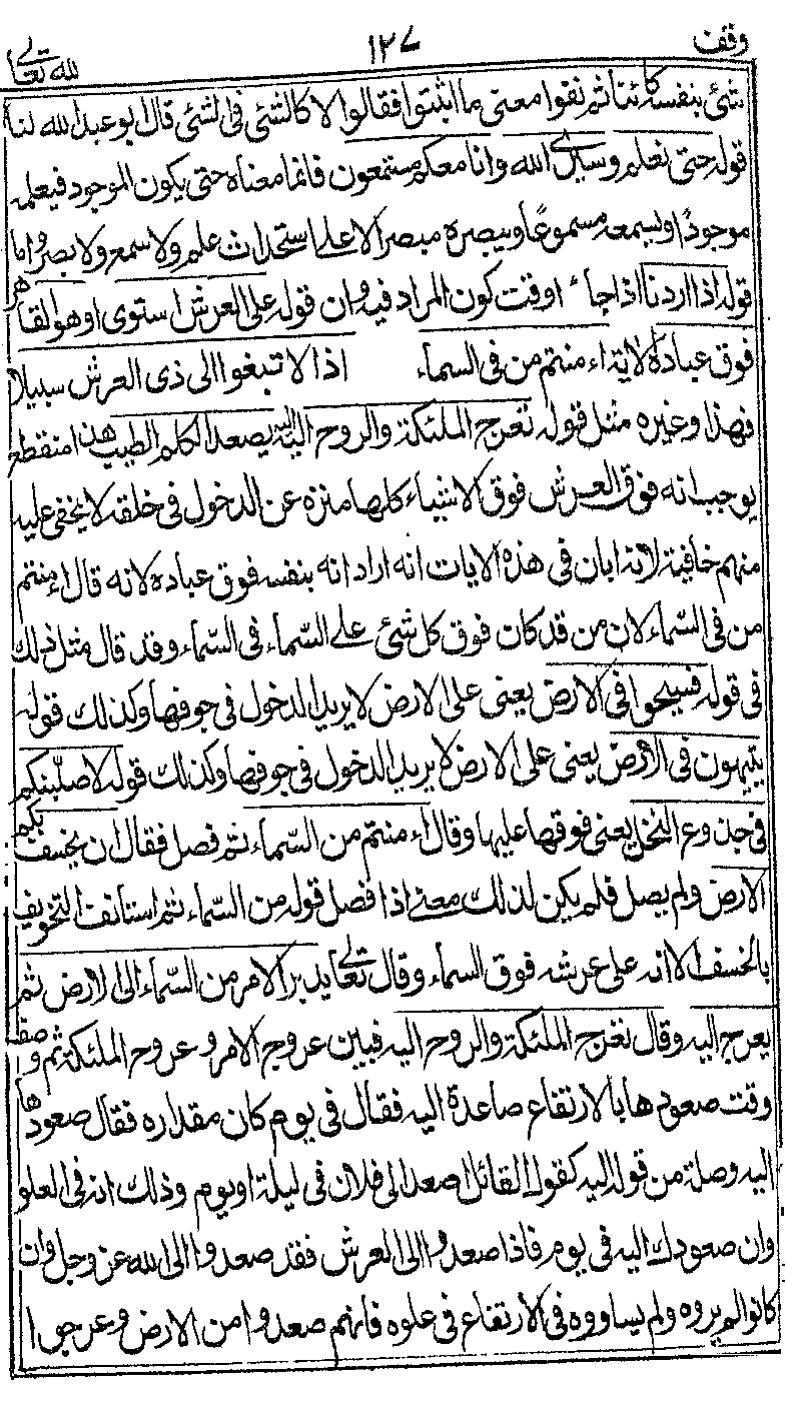 وقف ١٢٧ لله تعالى
شئ بنفسه كائنا ثم نفوا معنى ما اثبتوا فقالوا لا كالشئ فى الشئ قال ابو عبد الله لنا
قوله حتى نعلم وسيرى الله وانا معكم مستمعون فانما معناه حتى يكون الموجود فيعلمه
موجودًا ويسمعه مسموعًا ويبصره مبصرا لا على استحداث علم ولا سمع ولا بصر واما
قوله اذا اردنا اذا جاء اوقت كون المراد فيه وان قوله على العرش استوى وهو القاهر
فوق عباده الاية ءامنتم من فى السماء اذا لا تبغوا الى ذى العرش سبيلا
فهذا وغيره مثل قوله تعرج الملئكة والروح اليه اليه يصعد الكلم الطيب هذا منقطع
يوجب انه فوق العرش فوق الاشياء كلها منزه عن الدخول فى خلقه لا يخفى عليه
منهم خافية لانه ابان فى هذه الايات انه اراد انه بنفسه فوق عباده لانه قال ءامنتم
من فى السّماء لان من قد كان فوق كل شئ على السّماء فى السّماء وقد قال مثل ذلك
فى قوله فسيحوا فى الارض يعنى على الارض لا يريد الدخول فى جوفها وكذلك قوله
يتيهون فى الارض يعنى على الارض لا يريد الدخول فى جوفها وكذلك قوله لاصلّبنكم
فى جذوع النخل يعنى فوقها عليها وقال ءامنتم من السّماء ثم فصل فقال ان يخسف بكم
الارض ولم يصل فلم يكن لذلك معنى اذا فصل قوله من السّماء ثم استانف التخويف
بالخسف الا انه على عرشه فوق السماء وقال تعالى يدبر الامر من السّماء الى الارض ثم
يعرج اليه وقال تعرج الملئكة والروح اليه فبين عروج الامر وعروج الملئكة ثم وصف
وقت صعودها بالارتقاع صاعدة اليه فقال فى يوم كان مقداره فقال صعودها
اليه وصلة من قوله اليه كقول القائل اصعد الى فلان فى ليلة او يوم وذلك انه فى العلو
وان صعودك اليه فى يوم فاذا صعدوا الى العرش فقد صعدوا الى الله عز وجل وان
كانوا لم يروه ولم يساووه فى الارتقاع فى علوه فانهم صعدوا من الارض وعرجوا